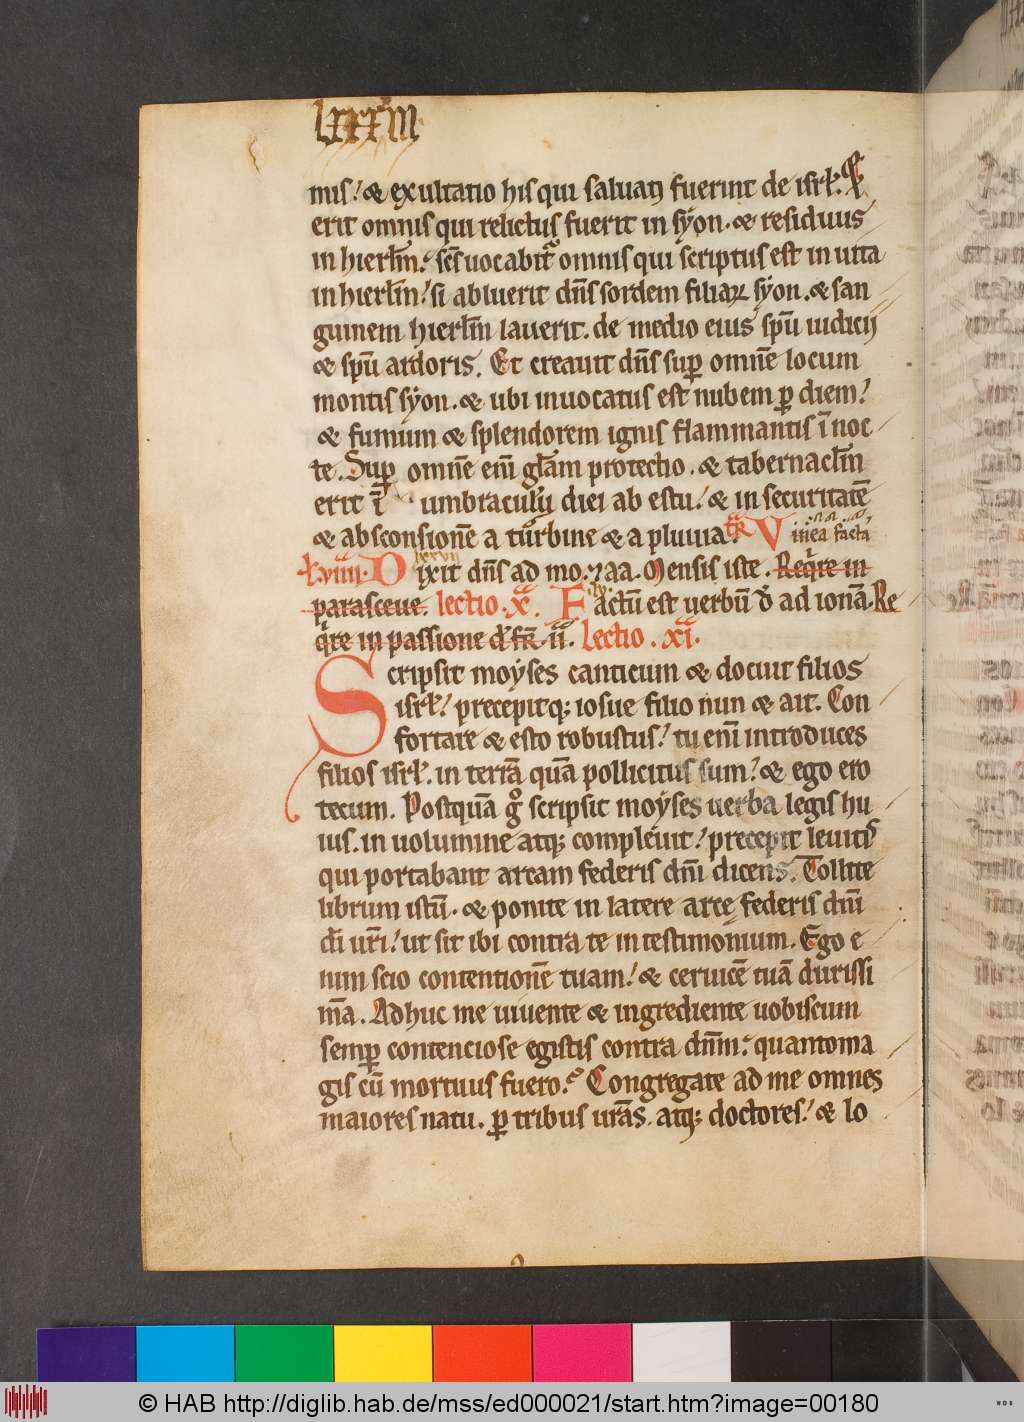 lxxxiii
mis! & exultatio his qui saluati fuerint de isrł. Et
erit omnis qui relictus fuerit in sÿon. & residuus
in hierłm. scs̄ uocabit᷑ omnis qui scriptus est in uita
in hierłm! si abluerit dn̄s sordem filiaꝝ sÿon. & san
guinem hierłm lauerit. de medio eius spū iudicij
& spū ardoris. Et creauit dn̄s suꝑ omnē locum
montis sÿon. & ubi inuocatus est nubem ꝑ diem!
& fumum & splendorem ignis flammantis ī noc
te. Suꝑ omnē enī głam protectio. & tabernacłm
erit ī umbraculū diei ab estu! & in securitatē
& absconsionē a turbine & a pluuia. tr̄ Vinea facta
ł. viiii. Dixit dn̄s ad mo. ⁊ aa. Mensis iste. Reqͥre in
parasceue. lectio. x. Factū est uerbū d̄ ad ionā. Re
qͥre in passione d̓ fr̄. ii. lectio. xi.
Scripsit moÿses canticum & docuit filios
isrł! precepitqꝫ iosue filio nun & ait. Con
fortare & esto robustus! tu enī introduces
filios isrł. in terrā quā pollicitus sum! & ego ero
tecum. Postquā gͦ scripsit moÿses uerba legis hu
ius. in uolumine atqꝫ compleuit! precepit leuitis
qui portabant arcam federis dn̄i dicens. Tollite
librum istū. & ponite in latere arce federis dn̄i
dī ur̄i! ut sit ibi contra te in testimonium. Ego e
nim scio contentionē tuam! & ceruicē tuā durissi
mā. Adhuc me uiuente & ingrediente uobiscum
semꝑ contenciose egistis contra dn̄m. quantoma
gis cū mortuus fuero. Congregate ad me omnes
maiores natu. ꝑ tribus ur̄as. atqꝫ doctores! & lo
© HAB http://diglib.hab.de/mss/ed000021/start.htm?image=00180